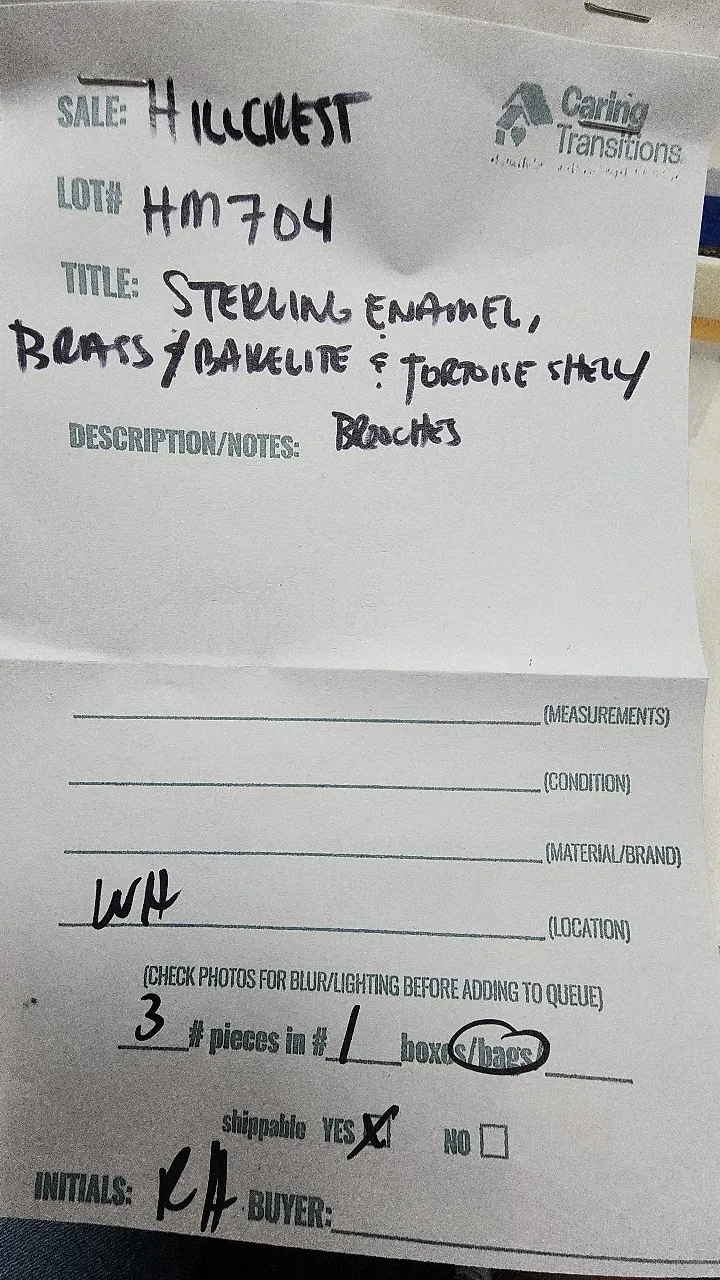 SALE: HILLCREST
Caring
Transitions
LOT# HM704
TITLE: STERLING ENAMEL,
BRASS / BAKELITE & TORTOISE SHELL
BROOCHES
DESCRIPTION/NOTES:
(MEASUREMENTS)
(CONDITION)
(MATERIAL/BRAND)
WH (LOCATION)
(CHECK PHOTOS FOR BLUR/LIGHTING BEFORE ADDING TO QUEUE)
3 # pieces in # 1 boxes/bags
shippable YES X NO
INITIALS: RA BUYER: